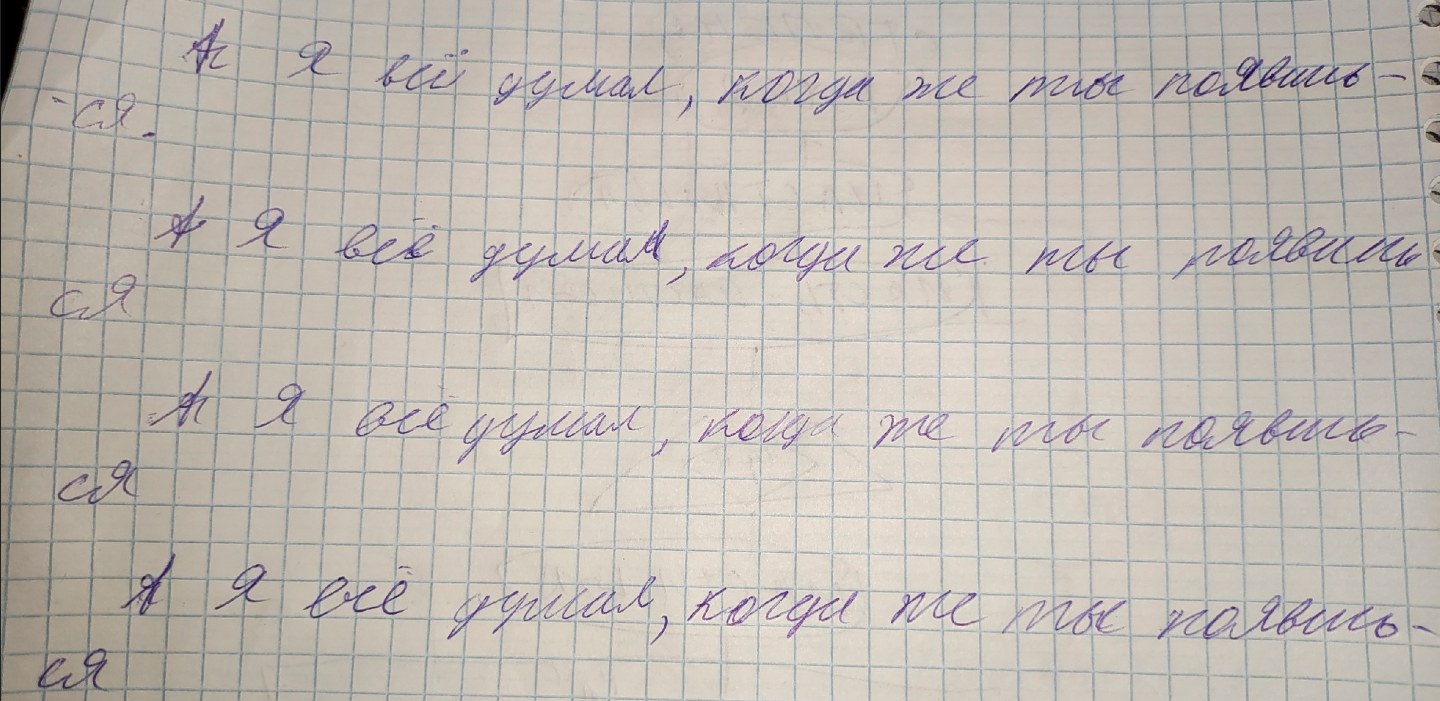 А я всё думал, когда же ты появишь-
-ся.
А я всё думал, когда же ты появишь
ся
А я всё думал, когда же ты появишь-
ся
А я всё думал, когда же ты появишь-
ся